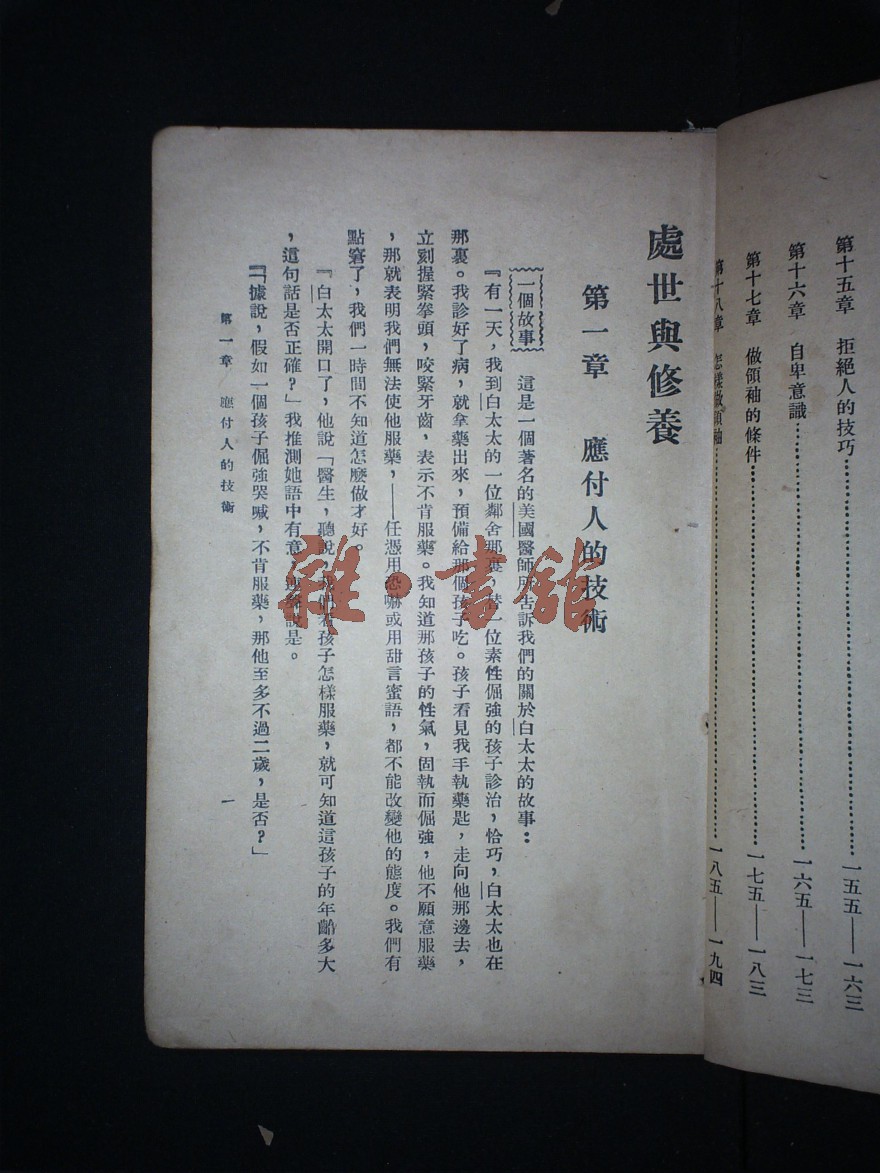 第十五章　拒絕人的技巧……………………一五五——一六三
第十六章　自卑意識……………………一六五——一七三
第十七章　做領袖的條件……………………一七五——一八三
第十八章　怎樣做領袖……………………一八五——一九四
處世與修養
第一章　應付人的技術
一個故事　這是一個著名的美國醫師所告訴我們的關於白太太的故事：
『有一天，我到白太太的一位鄰舍那裏，替一位素性倔強的孩子診治，恰巧，白太太也在
那裏。我診好了病，就拿藥出來，預備給那個孩子吃。孩子看見我手執藥匙，走向他那邊去，
立刻握緊拳頭，咬緊牙齒，表示不肯服藥。我知道那孩子的性氣，固執而倔強，他不願意服藥
，那就表明我們無法使他服藥，——任憑用恐嚇或用甜言蜜語，都不能改變他的態度。我們有
點窘了，我們一時間不知道怎麼做才好。
『白太太開口了，他說「醫生，聽說，我們看孩子怎樣服藥，就可知道這孩子的年齡多大
，這句話是否正確？」我推測她語中有意，連說是。
『「據說，假如一個孩子倔強哭喊，不肯服藥，那他至多不過二歲，是否？」
第一章　應付人的技術
一
雜·書館